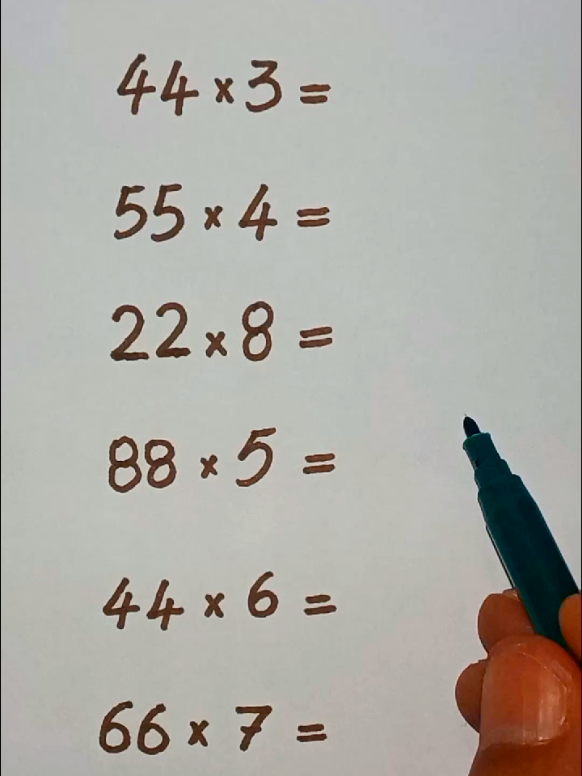 44 × 3 =
55 × 4 =
22 × 8 =
88 × 5 =
44 × 6 =
66 × 7 =